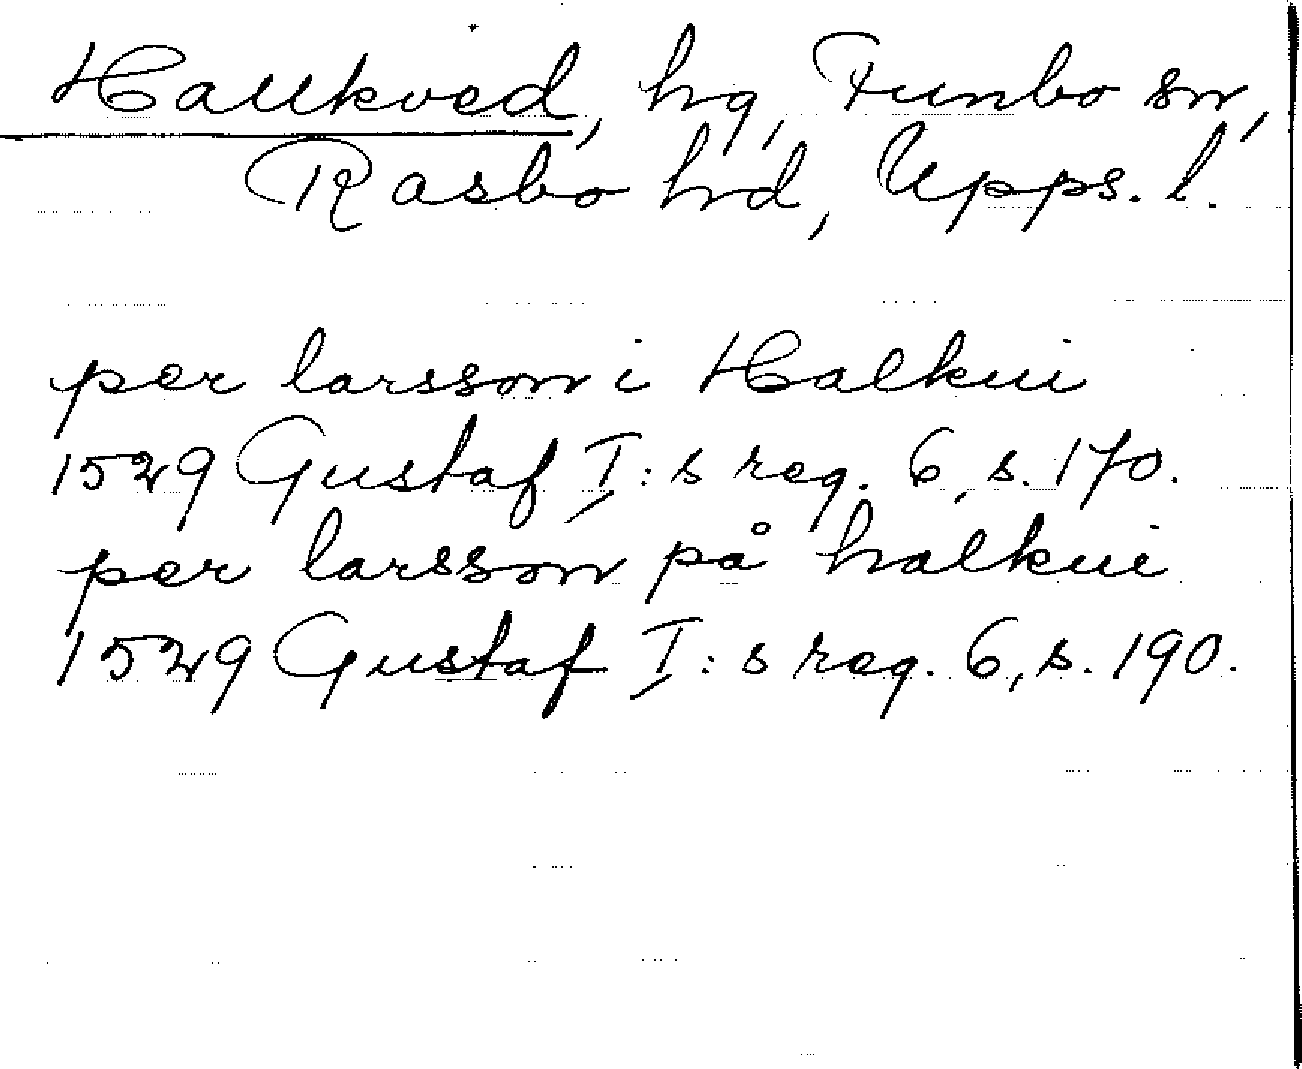 Hallkved, hg, Funbo sn,
Rasbo hd, Upps. l.
per larsson i Halkui
1529 Gustaf I:s reg. 6, s. 170.
per larsson på halkui
1529 Gustaf I:s reg. 6, s. 190.